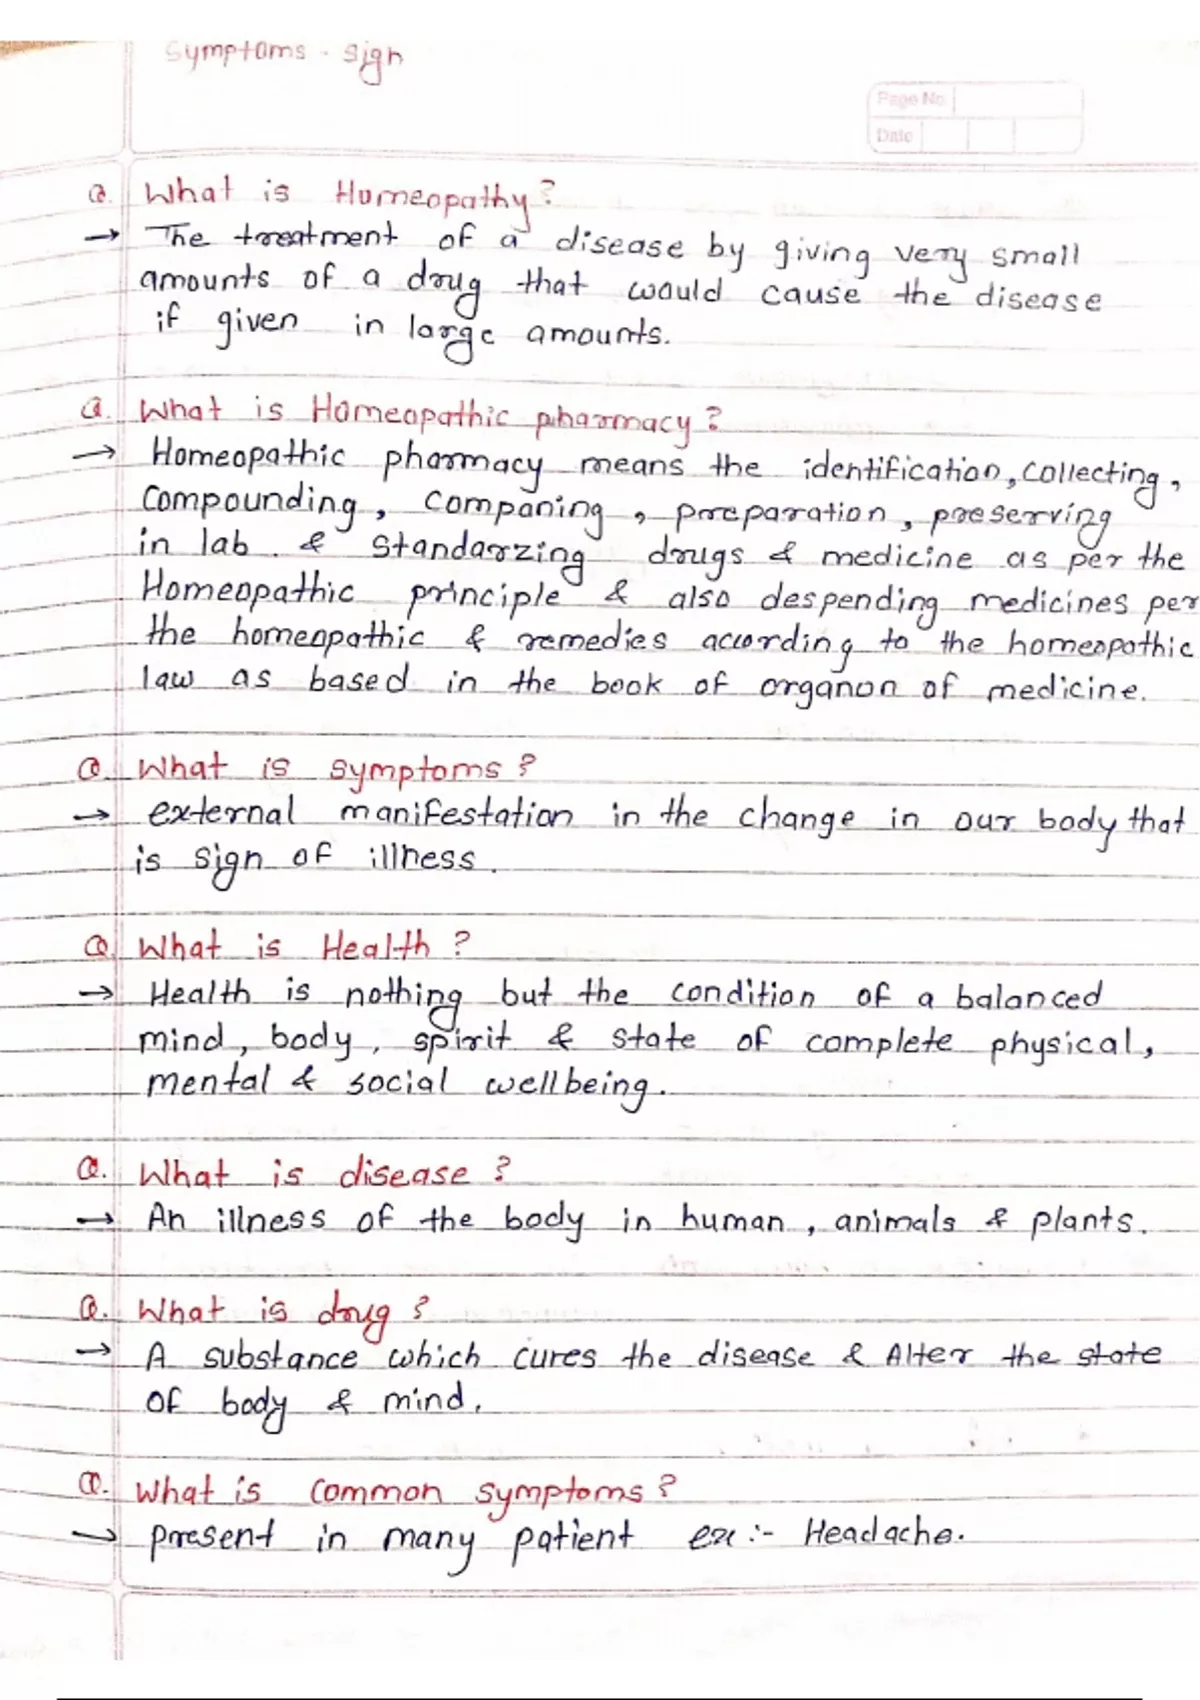 Symptoms - sign
Page No
Date
Q. What is Homeopathy?
→ The treatment of a disease by giving very small
amounts of a drug that would cause the disease
if given in large amounts.
Q. What is Homeopathic pharmacy?
→ Homeopathic pharmacy means the identification, collecting,
Compounding, companing, preparation, preserving
in lab. & standarzing drugs & medicine as per the
Homeopathic principle & also despending medicines per
the homeopathic & remedies according to the homeopathic
law as based in the book of organon of medicine.
Q. What is symptoms?
→ external manifestation in the change in our body that
is sign of illness.
Q. What is Health?
→ Health is nothing but the condition of a balanced
mind, body, spirit & state of complete physical,
mental & social wellbeing.
Q. What is disease?
→ An illness of the body in human, animals & plants.
Q. What is drug?
→ A substance which cures the disease & Alter the state
of body & mind.
Q. What is common symptoms?
→ present in many patient ex :- Headache.